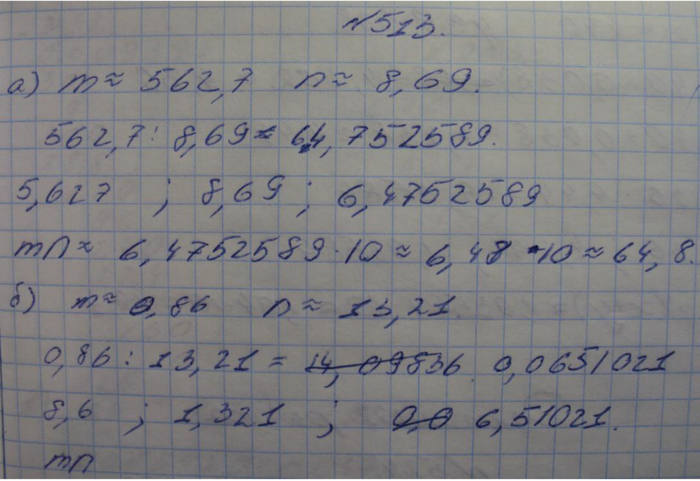 №513.
а) m ≈ 562,7 n ≈ 8,69.
562,7 : 8,69 ≈ 64,752589.
5,627 ; 8,69 ; 6,4752589
mn ≈ 6,4752589 · 10 ≈ 6,48 · 10 ≈ 64,8.
б) m ≈ 0,86 n ≈ 13,21
0,86 : 13,21 = 14,09836 0,0651021
8,6 ; 1,321 ; 0,0 6,51021.
mn